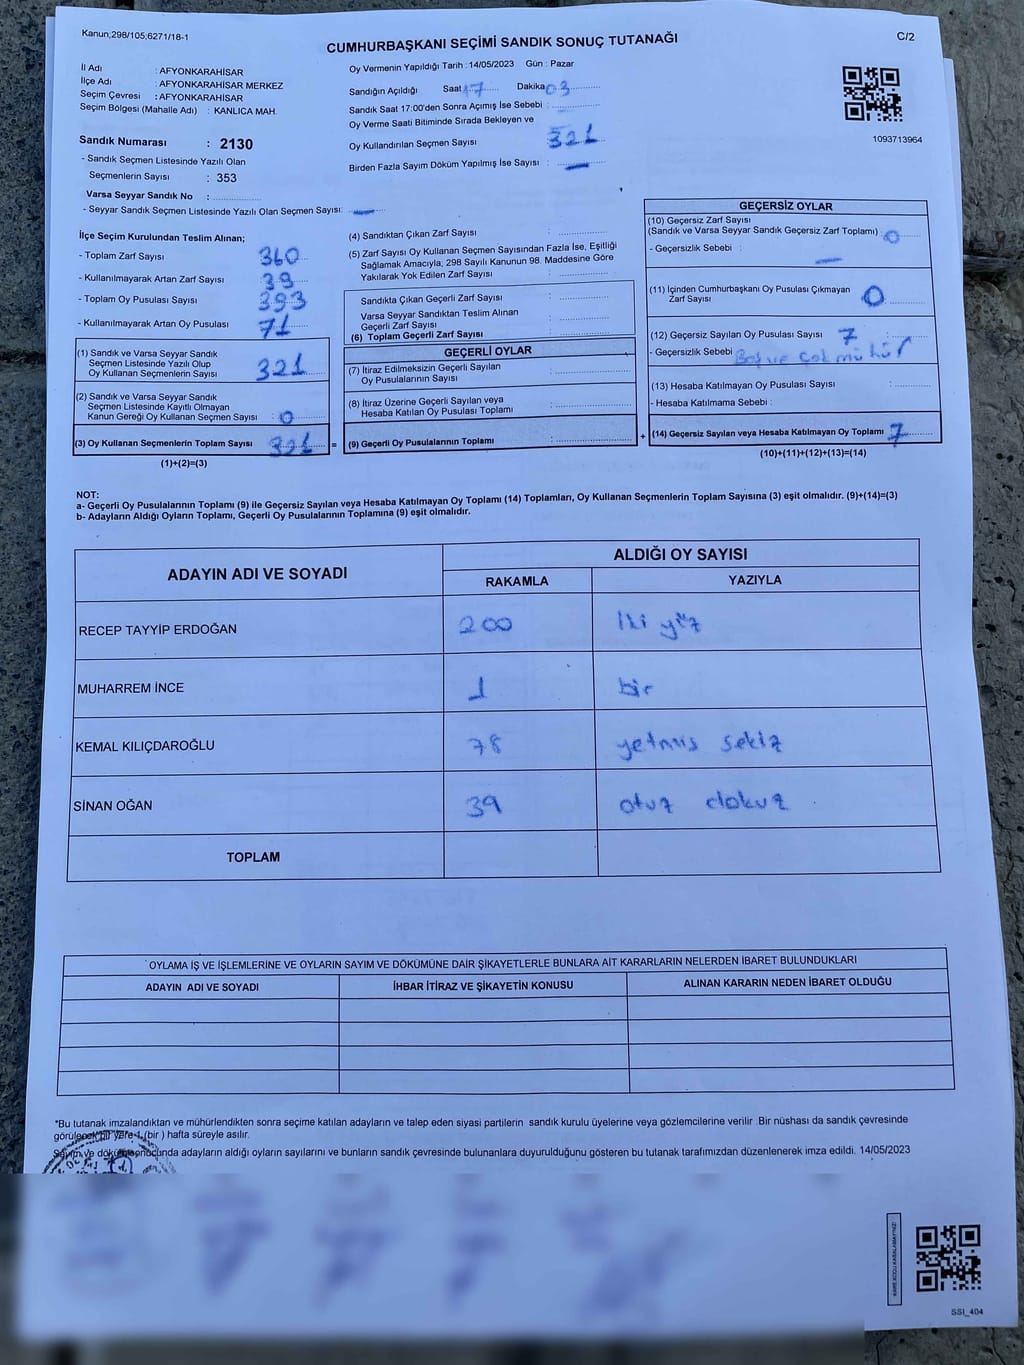 Kanun;298/105,6271/18-1
C/2
CUMHURBAŞKANI SEÇİMİ SANDIK SONUÇ TUTANAĞI
İl Adı : AFYONKARAHİSAR
İlçe Adı : AFYONKARAHİSAR MERKEZ
Seçim Çevresi : AFYONKARAHİSAR
Seçim Bölgesi (Mahalle Adı) : KANLICA MAH.
Sandık Numarası : 2130
- Sandık Seçmen Listesinde Yazılı Olan
Seçmenlerin Sayısı : 353
Varsa Seyyar Sandık No :
- Seyyar Sandık Seçmen Listesinde Yazılı Olan Seçmen Sayısı: —
Oy Vermenin Yapıldığı Tarih :14/05/2023 Gün : Pazar
Sandığın Açıldığı Saat 17 Dakika 03
Sandık Saat 17:00'den Sonra Açımış İse Sebebi :
Oy Verme Saati Bitiminde Sırada Bekleyen ve
Oy Kullandırılan Seçmen Sayısı : 321
Birden Fazla Sayım Döküm Yapılmış İse Sayısı : —
1093713964
İlçe Seçim Kurulundan Teslim Alınan;
- Toplam Zarf Sayısı 360
- Kullanılmayarak Artan Zarf Sayısı : 39
- Toplam Oy Pusulası Sayısı 393
- Kullanılmayarak Artan Oy Pusulası : 71
(1) Sandık ve Varsa Seyyar Sandık
Seçmen Listesinde Yazılı Olup
Oy Kullanan Seçmenlerin Sayısı : 321
(2) Sandık ve Varsa Seyyar Sandık
Seçmen Listesinde Kayıtlı Olmayan
Kanun Gereği Oy Kullanan Seçmen Sayısı : 0
(3) Oy Kullanan Seçmenlerin Toplam Sayısı 321
(1)+(2)=(3)
=
(4) Sandıktan Çıkan Zarf Sayısı :
(5) Zarf Sayısı Oy Kullanan Seçmen Sayısından Fazla İse, Eşitliği
Sağlamak Amacıyla; 298 Sayılı Kanunun 98. Maddesine Göre
Yakılarak Yok Edilen Zarf Sayısı :
Sandıkta Çıkan Geçerli Zarf Sayısı :
Varsa Seyyar Sandıktan Teslim Alınan
Geçerli Zarf Sayısı :
(6) Toplam Geçerli Zarf Sayısı :
GEÇERLİ OYLAR
(7) İtiraz Edilmeksizin Geçerli Sayılan
Oy Pusulalarının Sayısı :
(8) İtiraz Üzerine Geçerli Sayılan veya
Hesaba Katılan Oy Pusulası Toplamı :
(9) Geçerli Oy Pusulalarının Toplamı :
+
GEÇERSİZ OYLAR
(10) Geçersiz Zarf Sayısı
(Sandık ve Varsa Seyyar Sandık Geçersiz Zarf Toplamı) : 0
- Geçersizlik Sebebi : —
(11) İçinden Cumhurbaşkanı Oy Pusulası Çıkmayan
Zarf Sayısı : 0
(12) Geçersiz Sayılan Oy Pusulası Sayısı : 7
- Geçersizlik Sebebi Boş ve çok mühür
(13) Hesaba Katılmayan Oy Pusulası Sayısı :
- Hesaba Katılmama Sebebi :
(14) Geçersiz Sayılan veya Hesaba Katılmayan Oy Toplamı 7
(10)+(11)+(12)+(13)=(14)
NOT:
a- Geçerli Oy Pusulalarının Toplamı (9) ile Geçersiz Sayılan veya Hesaba Katılmayan Oy Toplamı (14) Toplamları, Oy Kullanan Seçmenlerin Toplam Sayısına (3) eşit olmalıdır. (9)+(14)=(3)
b- Adayların Aldığı Oyların Toplamı, Geçerli Oy Pusulalarının Toplamına (9) eşit olmalıdır.
ADAYIN ADI VE SOYADI
ALDIĞI OY SAYISI
RAKAMLA YAZIYLA
RECEP TAYYİP ERDOĞAN 200 iki yüz
MUHARREM İNCE 1 bir
KEMAL KILIÇDAROĞLU 78 yetmis sekiz
SİNAN OĞAN 39 otuz dokuz
TOPLAM
OYLAMA İŞ VE İŞLEMLERİNE VE OYLARIN SAYIM VE DÖKÜMÜNE DAİR ŞİKAYETLERLE BUNLARA AİT KARARLARIN NELERDEN İBARET BULUNDUKLARI
ADAYIN ADI VE SOYADI İHBAR İTİRAZ VE ŞİKAYETİN KONUSU ALINAN KARARIN NEDEN İBARET OLDUĞU
*Bu tutanak imzalandıktan ve mühürlendikten sonra seçime katılan adayların ve talep eden siyasi partilerin sandık kurulu üyelerine veya gözlemcilerine verilir Bir nüshası da sandık çevresinde
görülecek bir yere 1 (bir ) hafta süreyle asılır.
Sayım ve döküm sonucunda adayların aldığı oyların sayılarını ve bunların sandık çevresinde bulunanlara duyurulduğunu gösteren bu tutanak tarafımızdan düzenlenerek imza edildi. 14/05/2023
SSI_404